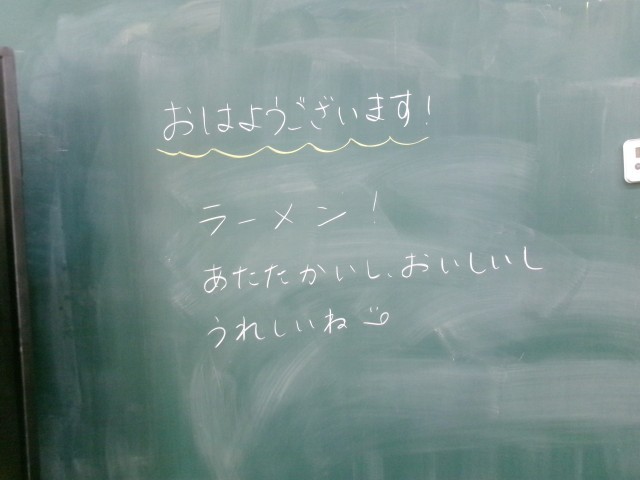 おはようございます!
ラーメン!
あたたかいし、おいしいし
うれしいね